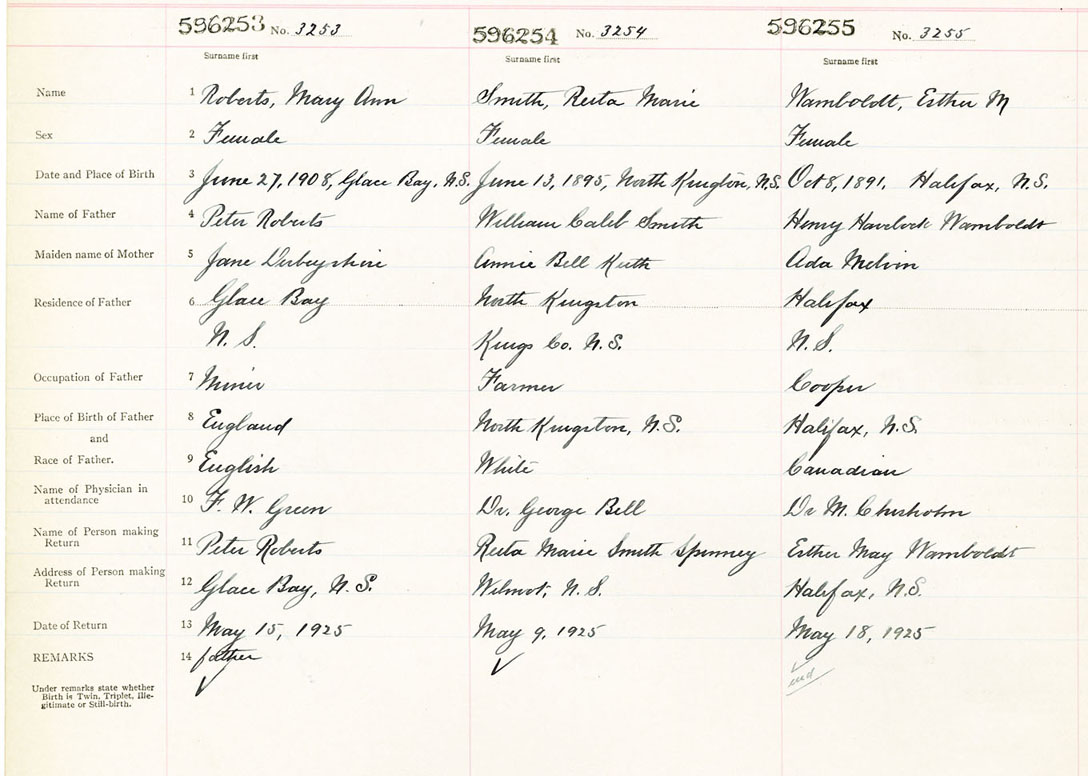 596253 No. 3253 596254 No. 3254 596255 No. 3255
Surname first Surname first Surname first
Name 1 Roberts, Mary Ann Smith, Reita Marie Wamboldt, Esther M
Sex 2 Female Female Female
Date and Place of Birth 3 June 27, 1908, Glace Bay, N.S. June 13, 1895, North Kingston, N.S. Oct 8, 1891. Halifax, N.S.
Name of Father 4 Peter Roberts William Caleb Smith Henry Havelock Wamboldt
Maiden name of Mother 5 Jane Derbyshire Annie Bell Keith Ada Melvin
Residence of Father 6 Glace Bay North Kingston Halifax
N. S. Kings Co. N.S. N.S.
Occupation of Father 7 Miner Farmer Cooper
Place of Birth of Father 8 England North Kingston, N.S. Halifax, N.S.
and
Race of Father. 9 English White Canadian
Name of Physician in attendance 10 F. W. Green Dr. George Bell Dr M. Chisholm
Name of Person making Return 11 Peter Roberts Reita Marie Smith Spinney Esther May Wamboldt
Address of Person making Return 12 Glace Bay, N.S. Wilmot, N.S. Halifax, N.S.
Date of Return 13 May 15, 1925 May 9, 1925 May 18, 1925
REMARKS 14 father
Under remarks state whether
Birth is Twin, Triplet, Ille-
gitimate or Still-birth.